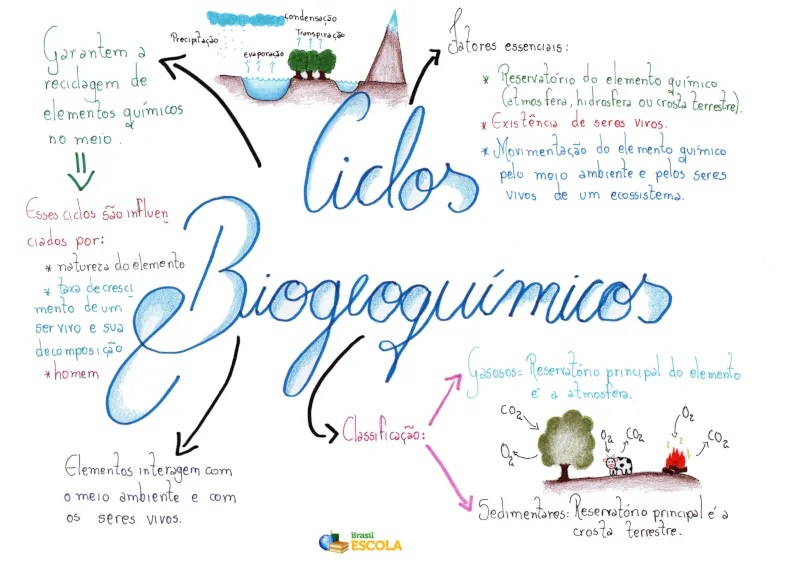 Ciclos
Biogeoquímicos
condensação
Precipitação
Transpiração
evaporação
Garantem a
reciclagem de
elementos químicos
no meio.
Esses ciclos são influen
ciados por:
* natureza do elemento
* taxa de cresci
mento de um
ser vivo e sua
decomposição
* homem
Fatores essenciais:
* Reservatório do elemento químico
(atmosfera, hidrosfera ou crosta terrestre).
* Existência de seres vivos.
* Movimentação do elemento químico
pelo meio ambiente e pelos seres
vivos de um ecossistema.
Elementos interagem com
o meio ambiente e com
os seres vivos.
Classificação:
Gasosos: Reservatório principal do elemento
é a atmosfera.
CO2
O2
O2
CO2
O2
CO2
Sedimentares: Reservatório principal é a
crosta terrestre.
Brasil
ESCOLA